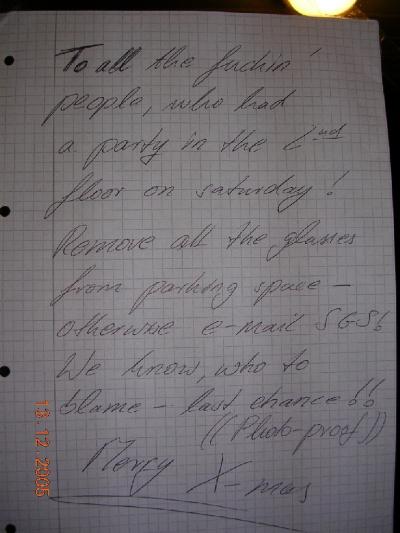 To all the fuckin'
people, who had
a party in the 2nd
floor on saturday!
Remove all the glasses
from parking space –
otherwise e-mail SGS!
We know, who to
blame – last chance!!
((Photo-proof))
Merry
X-mas
13.12.2005